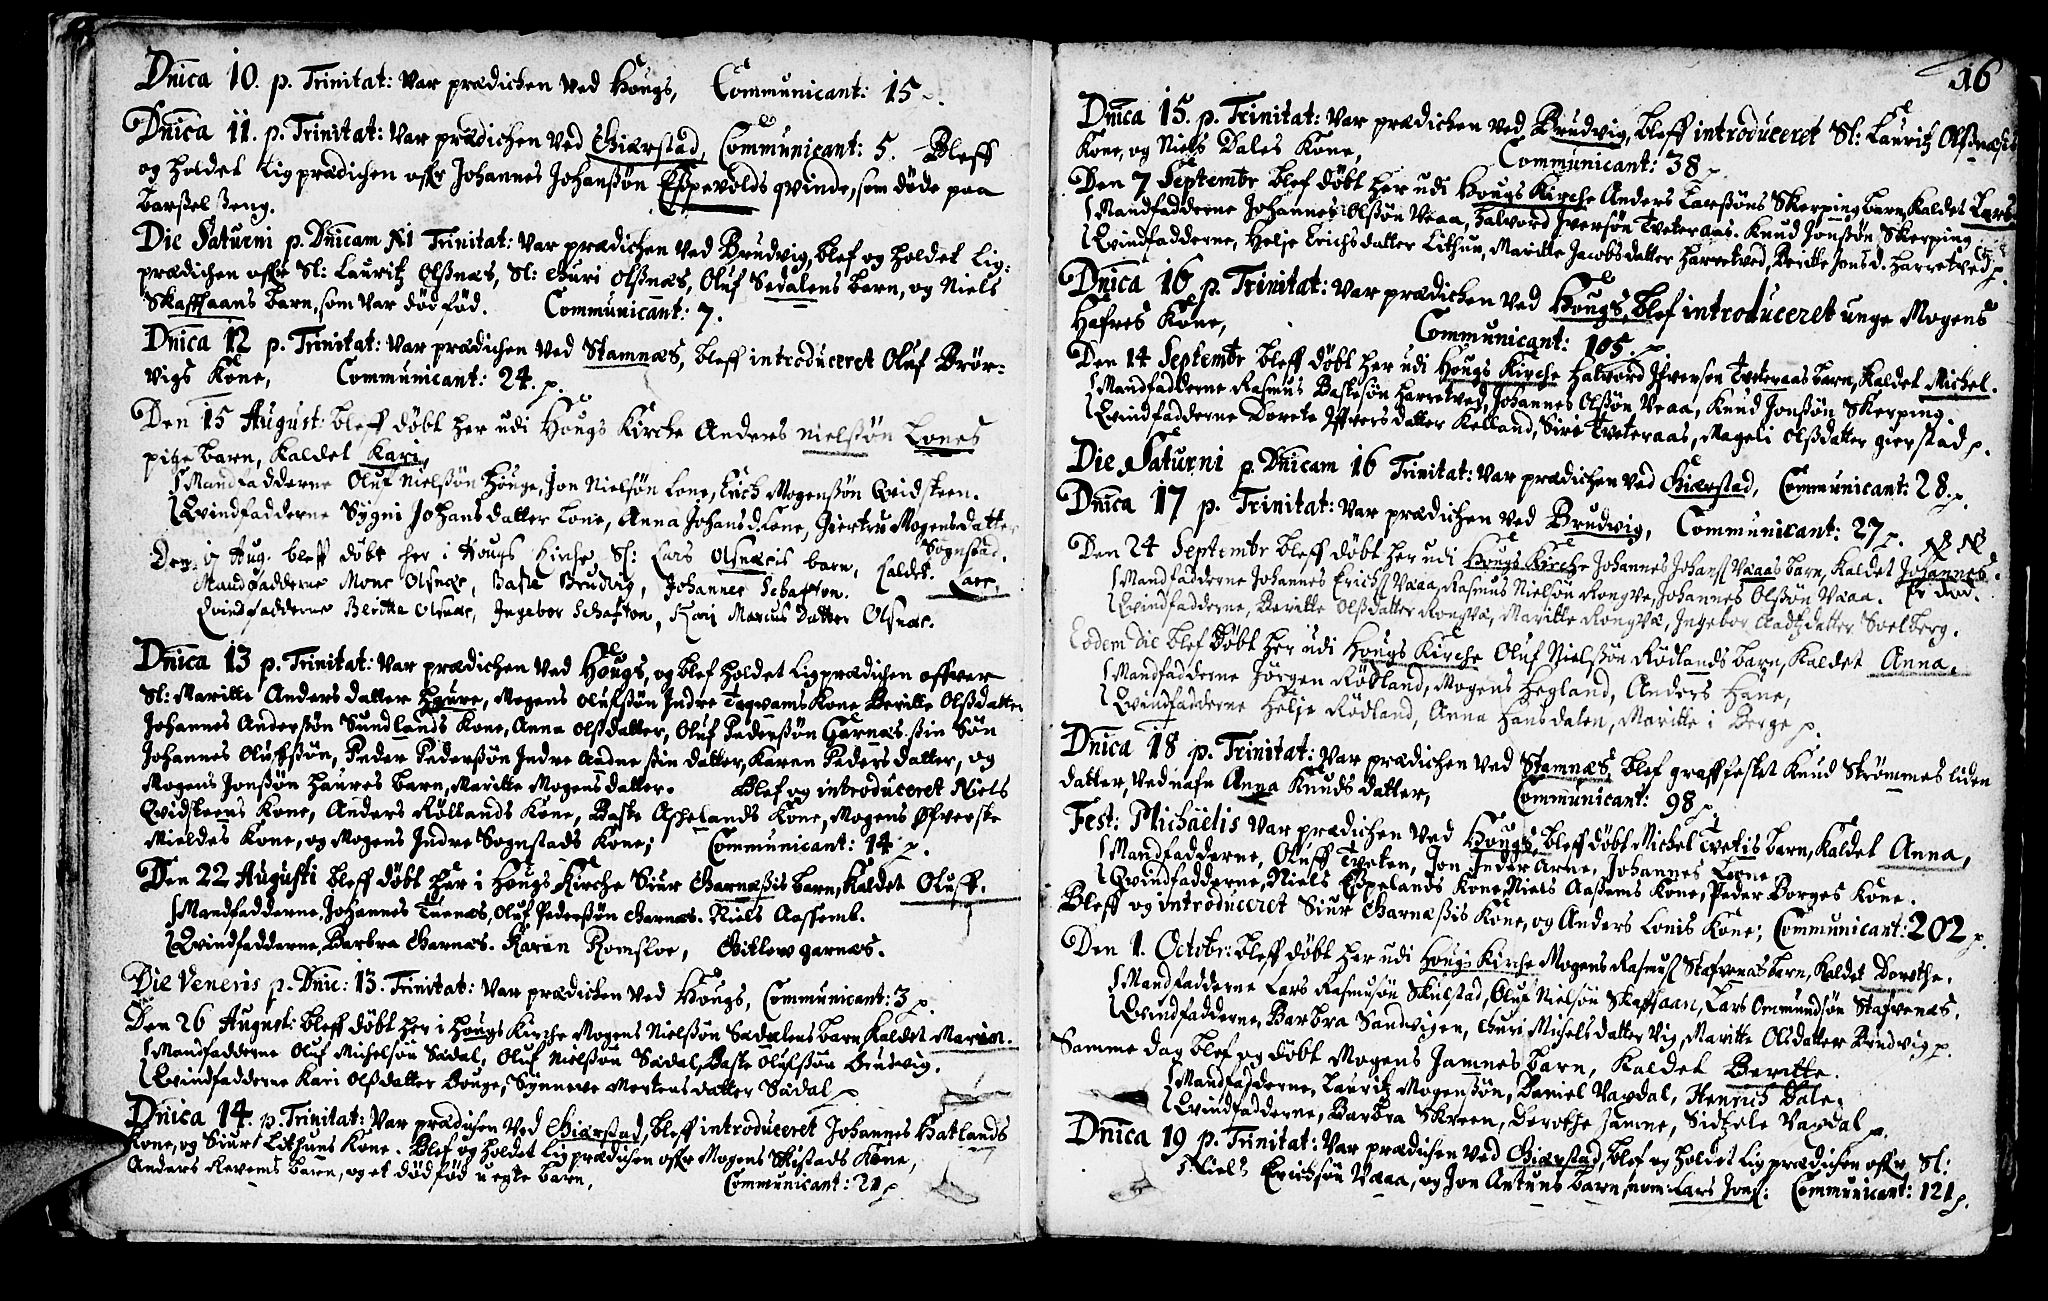 Dnica 10. p. Trinitat: Var prædichen ved Hougs, Communicant: 15.
Dnica 11. p. Trinitat: Var prædichen ved Giærstad, Communicant: 5. Bleff
og holdet Ligprædichen offr Johannes Johanßøn Eßpevolds qvinde, som døde paa
barßel ßeng.
Die Saturni p. Dnicam XI Trinitat: Var prædichen ved Brudvig, blef og holdet Lig:
prædichen offr Sl: Lauritz Olßnæs, Sl: Guri Olßnæs, Oluf Sedalens barn, og Niels
Skaffaans barn, som var død fød. Communicant: 7.
Dnica 12 p. Trinitat: Var prædichen ved Stamnæs, bleff introduceret Oluf Brør-
vigs Kone, Communicant: 24. p.
Den 15 August: bleff døbt her udi Hougs Kirche Anders Nielßøn Lones
pige barn, Kaldet Kari,
Mandfadderne Oluf Nielßøn Houge, Jon Nielsøn Lone, Erich Mogenßøn Qvidsteen.
Qvindfadderne Sygni Johansdatter Lone, Anna Johansd. Lone, Giertru Mogensdatter
Sognstad.
Den 17 Aug. bleff døbt her i Hougs Kirche, Sl: Lars Olsnæsis barn, Kaldet Lars,
Mandfadderne Mons Olsnæs, Basse Brudvig, Johannes Schafton.
Qvindfadderne Beritta Olsnæs, Ingebor Schafton, Kari Marcusdatter Olsnæs.
Dnica 13 p. Trinitat: Var prædichen ved Hougs, og blef holdet Ligprædichen offver
Sl: Maritte Andersdatter Houre, Mogens Olufsøn Indre Tøqvams Kone Beritte Olßdatter
Johannes Anderßøn Sundlands Kone, Anna Olßdatter, Oluf Pederßøn Garnæs ßin Søn
Johannes Oluffßøn, Peder Pederßøn Indre Aadne ßin datter, Karen Pedersdatter, og
Mogens Jonßøn Haures barn, Maritte Mogensdatter. Blef og introduceret Niels
Qvidsteens Kone, Anders Røllands Kone, Baste Aschelands Kone, Mogens Øfverste
Mieldes Kone, og Mogens Indre Sognstads Kone; Communicant: 14 p.
Den 22 Augusti bleff døbt her i Hougs Kirche Siur Garnæßis barn, Kaldet Oluff.
Mandfadderne, Johannes Tuenæs, Oluf Pederßøn Garnæs. Niels Aassemb.
Qvindfadderne, Barbra Garnæs. Karen Romsloe, Gitlew Garnæs.
Die Veneris p. Dnic: 13. Trinitat: Var prædichen ved Hougs, Communicant: 3 p.
Den 26 August: bleff døbt her i Hougs Kirche Mogens Nielßøn Sædalens barn, Kaldet Marin.
Mandfadderne Oluf Michelsøn Sædal, Oluf Nielßøn Sædal, Baste Olufßøn Brudvig.
Qvindfadderne Kari Olßdatter Bouge, Synneve Mortensdatter Sædal p.
Dnica 14. p. Trinitat: Var prædichen ved Giærstad, bleff introduceret Johannes Hatlands
Kone, og Siurt Lithuns Kone. Blef og holdet Ligprædichen offr Mogens Skistads Kone,
Anders Revems barn, og et død fød uegte barn, Communicant: 21 p.
16
Dnica 15. p. Trinitat: Var prædichen ved Brudvig, bleff introduceret Sl: Lauritz Olßnæsis
Kone, og Niels Dales Kone, Communicant: 38 p.
Den 7 Septembr blef døbt her udi Hougs Kirche Anders Larßøns Skerping barn, Kaldet Lars.
Mandfadderne Johannes Olßøn Væaa, Halvord Iversøn Tveteraas. Knud Jonßøn Skerping
Qvindfadderne, Helje Erichsdatter Lithun, Maritte Jacobsdatter Harretved, Beritte Jonsd. Harretved p.
Dnica 16 p. Trinitat: Var prædichen ved Hougs, blef introduceret unge Mogens
Hafres Kone, Communicant: 105 p.
Den 14 Septembr bleff døbt her udi Hougs Kirche Halvord Iffversøn Tveteraas barn, Kaldet Michel.
Mandfadderne Rasmus Bastesøn Harretved, Johannes Olßøn Væaa, Knud Jonßøn Skerping
Qvindfadderne Dorete Iffversdatter Kelland, Siri Tveteraas, Mageli Olßdatter Gierstad p.
Die Saturni p. Dnicam 16 Trinitat: Var prædichen ved Giærstad, Communicant: 28. p.
Dnica 17 p. Trinitat: Var prædichen ved Brudvig, Communicant: 27 p. NB NB
Den 24 Septembr bleff døbt her udi Hougs Kirche Johannes Johans Væaas barn, Kaldet Johannes.
Mandfadderne Johannes Erichs Væaa, Rasmus Nielsøn Rongve, Johannes Olßøn Væaa. Er død.
Qvindfadderne, Beritte Olßdatter Rongve, Maritte Rongve, Ingebor Aadtzdatter Soelberg.
Eodem die blef døbt her udi Hougs Kirche Oluf Nielßøn Rødlands barn, Kaldet Anna,
Mandfadderne Jørgen Rødland, Mogens Hegland, Anders Hane,
Qvindfadderne Helje Rødland, Anna Hansdalen, Maritte i Berge p.
Dnica 18 p. Trinitat: Var prædichen ved Stamnæs, blef graffestet Knud Strømmes liden
datter, ved nafn Anna Knudsdatter, Communicant: 98 p.
Fest: Michaëlis Var prædichen ved Hougs, bleff døbt Michel Tvetis barn, Kaldet Anna,
Mandfadderne, Oluff Tveten, Jon Inder Arne, Johannes Lone,
Qvindfadderne, Niels Eßpelands Kone, Niels Aaßems Kone, Peder Borges Kone.
Bleff og introduceret Siur Garnæßis Kone, og Anders Lonis Kone; Communicant: 202 p.
Den 1. Octobr: bleff døbt her udi Hougs Kirche Mogens Rasmus Stafvenæs barn, Kaldet Dorethe.
Mandfadderne Lars Rasmusøn Skulstad, Oluf Nielsøn Skaffaan, Lars Ommundsøn Stafvenæs,
Qvindfadderne, Barbra Sandvigen, Guri Michelsdatter Vig, Maritte Olsdatter Brudvig p.
Samme dag blef og døbt Mogens Jamnes barn, Kaldet Beritte.
Mandfadderne, Lauritz Mogenßøn, Daniel Vaxdal, Henrich Dale.
Qvindfadderne, Barbra Skreen, Dorothe Jamne, Sidzele Vaxdal p.
Dnica 19 p. Trinitat: Var prædichen ved Giærstad, blef og holdet Ligprædichen offr Sl:
Niels Erichsøn Væaa, og Jon Antuns barn, nom: Lars Jons: Communicant: 121 p.